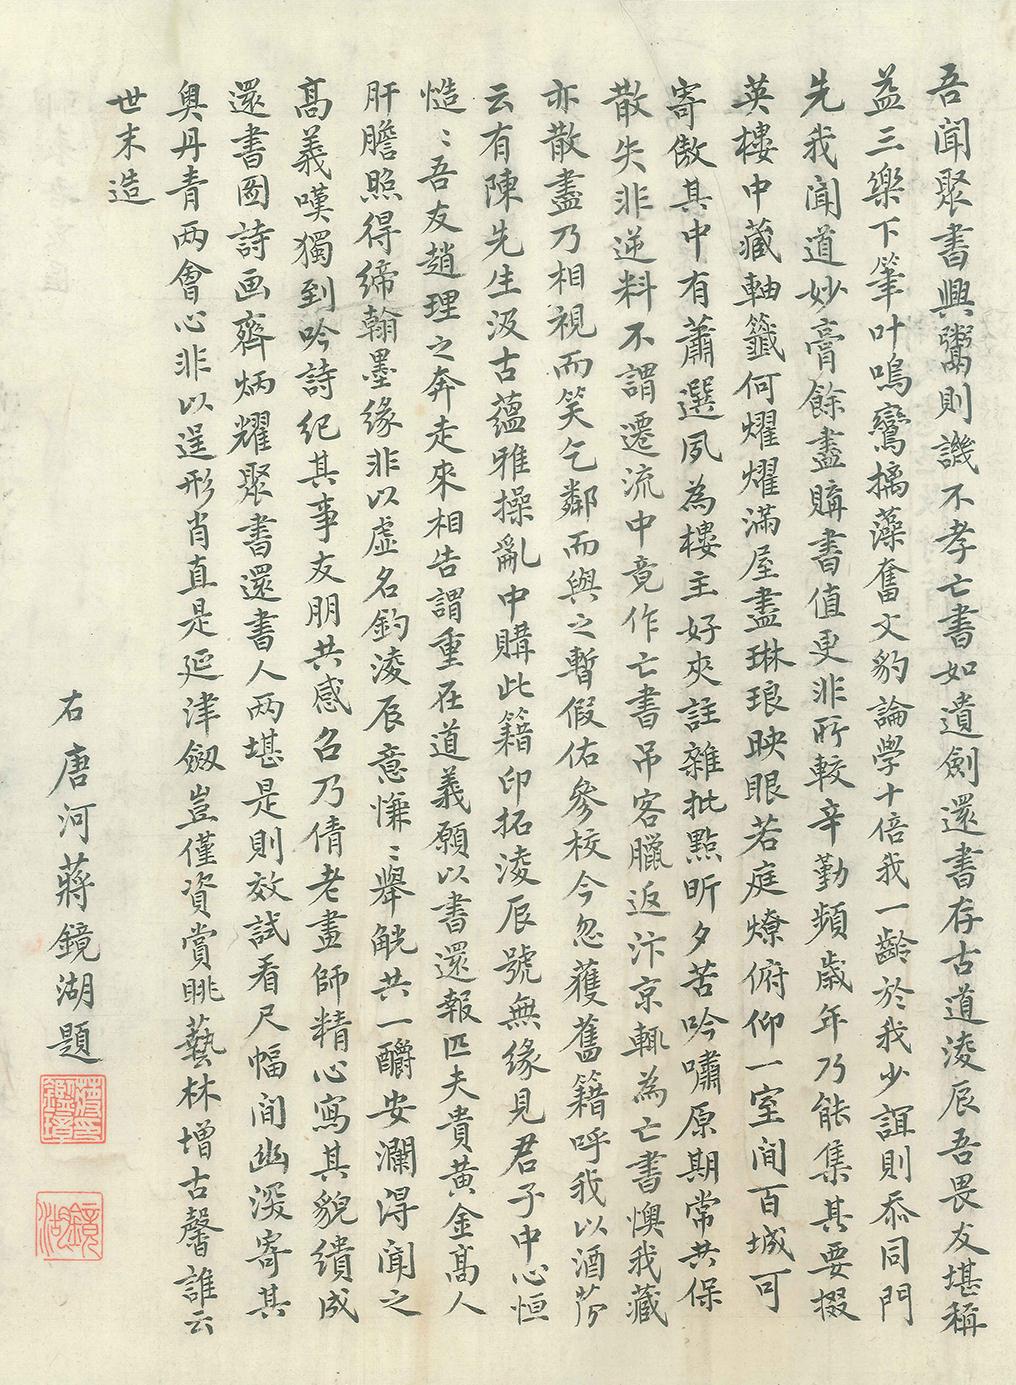 吾聞聚書興鬻則譏不孝亡書如遺劍還書存古道淩辰吾畏友堪稱
益三樂下筆叶鳴鸞摛藻奮文豹論學十倍我一齡於我少誼則忝同門
先我聞道妙膏餘盡購書值更非所較辛勤頻歲年乃能集其要掇
英樓中藏軸籤何燿燿滿屋盡琳琅映眼若庭燎俯仰一室間百城可
寄傲其中有蕭選夙為樓主好夾註雜批點昕夕苦吟嘯原期常共保
散失非逆料不謂遷流中竟作亡書吊客臘返汴京輒為亡書懊我藏
亦散盡乃相視而笑乞鄰而與之暫假佑參校今忽獲舊籍呼我以酒芬
云有陳先生汲古蘊雅操亂中購此籍印拓淩辰號無緣見君子中心恒
慥〻吾友趙理之奔走來相告謂重在道義願以書還報匹夫貴黃金高人
肝膽照得締翰墨緣非以虛名釣淩辰意慊〻舉觥共一釂安瀾得聞之
高義嘆獨到吟詩紀其事友朋共感召乃倩老畫師精心寫其貌繢成
還書圖詩画齊炳耀聚書還書人两堪是則效試看尺幅間幽深寄其
奥丹青两會心非以逞形肖直是延津劔豈僅資賞眺藝林增古馨誰云
世末造
右唐河蔣鏡湖題
鏡湖